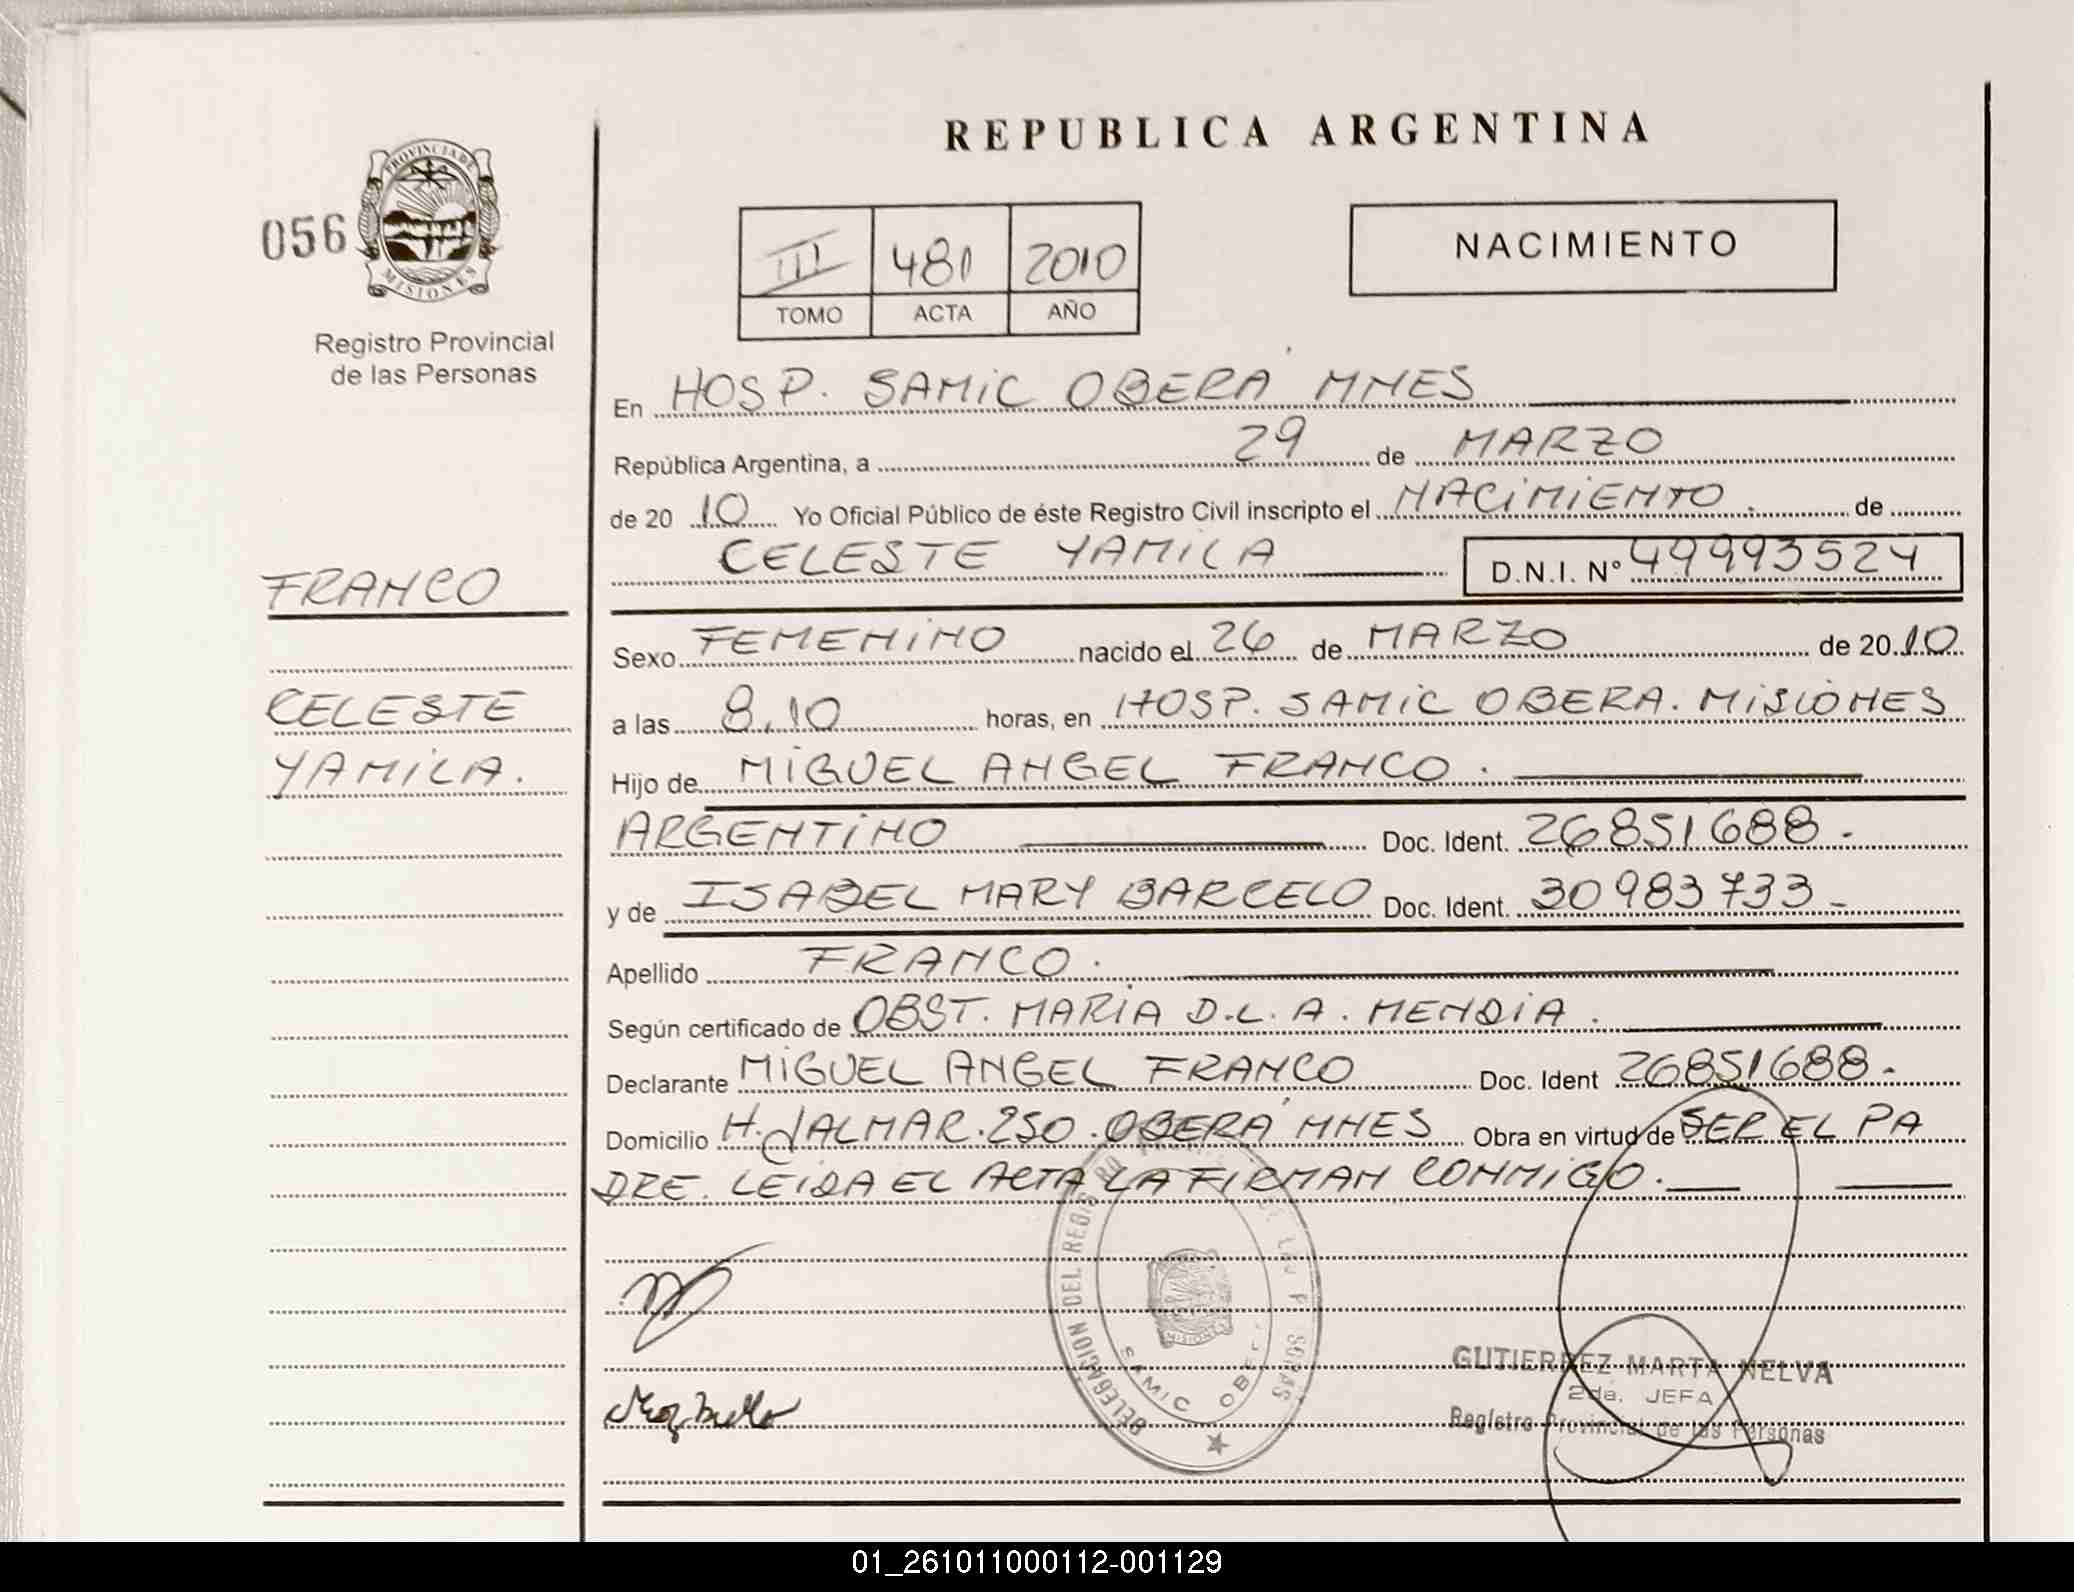 REPUBLICA ARGENTINA
056
PROVINCIA DE
MISIONES
Registro Provincial
de las Personas
III 481 2010
TOMO ACTA AÑO
NACIMIENTO
En HOSP. SAMIC OBERÁ MNES
República Argentina, a 29 de MARZO
de 20 10 Yo Oficial Público de éste Registro Civil inscripto el NACIMIENTO. de
CELESTE YAMILA D.N.I. Nº 49993524
FRANCO
CELESTE
YAMILA.
Sexo FEMENINO nacido el 26 de MARZO de 20 10
a las 8.10 horas, en HOSP. SAMIC OBERA. MISIONES
Hijo de MIGUEL ANGEL FRANCO.
ARGENTINO Doc. Ident. 26851688.
y de ISABEL MARY BARCELO Doc. Ident. 30983733-
Apellido FRANCO.
Según certificado de OBST. MARIA D.L.A. MENDIA.
Declarante MIGUEL ANGEL FRANCO Doc. Ident 26851688.
Domicilio H. JALMAR. 250. OBERÁ MNES Obra en virtud de SER EL PA
DRE. LEIDA EL ACTA LA FIRMAN CONMIGO.
DELEGACION DEL REGIS
SAMIC
MISIONES
GUTIERREZ MARTA NELVA
2da. JEFA
Registro Provincial de las Personas
01_261011000112-001129